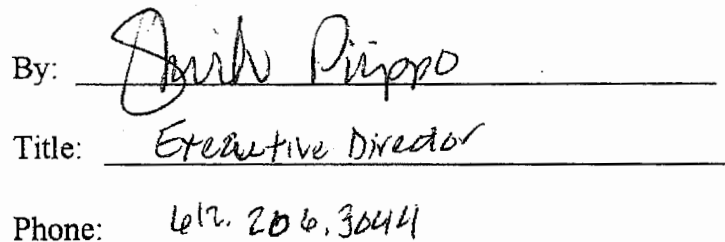 By: Pirppo
Title: Executive Director
Phone: 612.206.3044